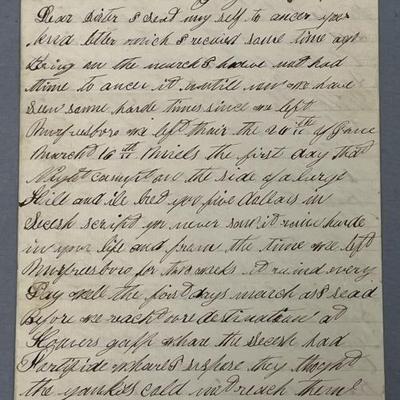 Dear sister I seat my self to ancer your
kind letter which I recived some time ago
Being on the march I have not had
time to ancer it untill now we have
seen some harde times since we left
Murfresboro we left thair the 24th of June
March 16 miels the first day that
Night campt on the side of a large
Hill and ile bet you five dollars in
Secesh script you never saw it raine harde
in your life and from the time we left
Murfresboro for two weeks it raind every
Day well the first days march as I sead
Before we reacht ore destination at
Hoovers gapp whare the secesh had
Fortifide whare I supose they thought
the yankes cold not reach them